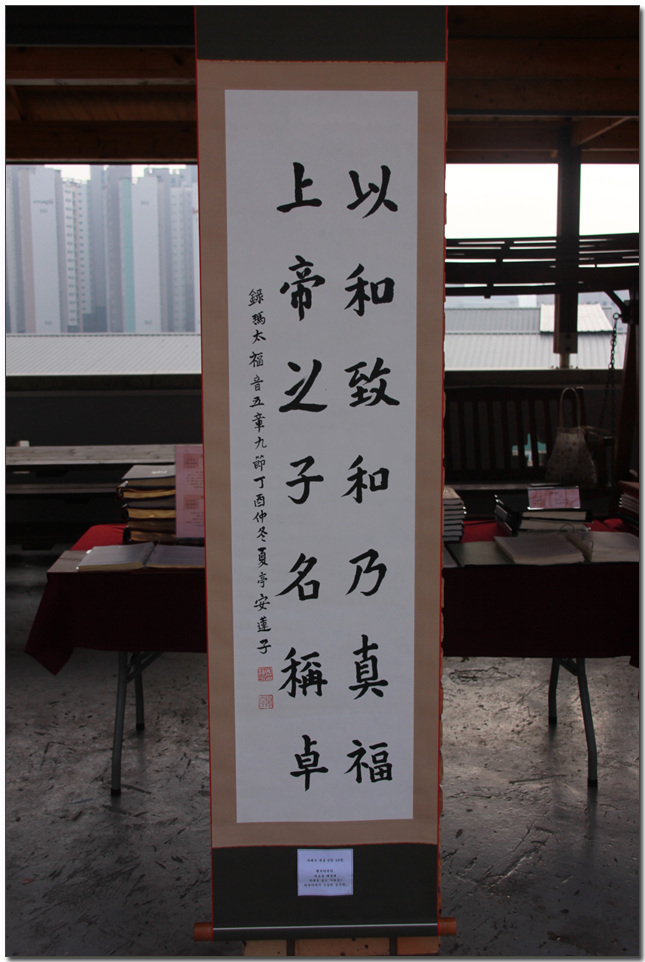 以和致和乃真福
上帝之子名稱卓
錄瑪太福音五章九節丁酉仲冬夏亭安蓮子